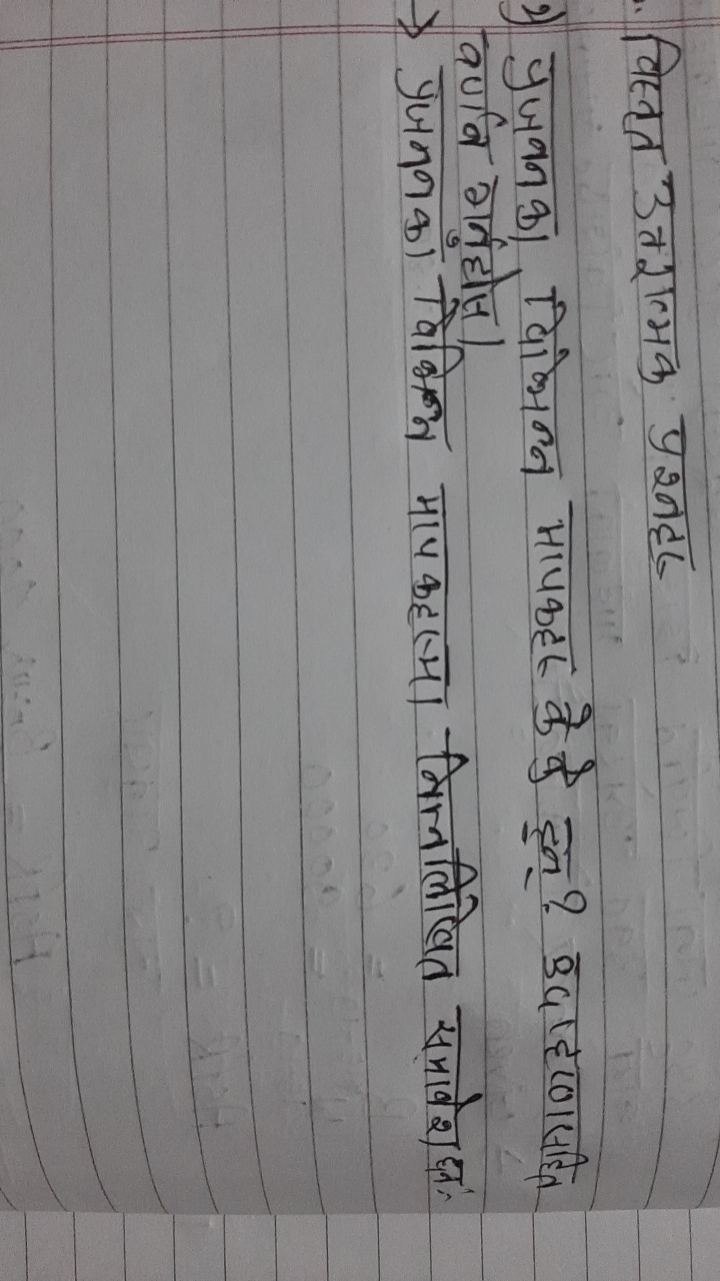 विस्तृत उत्तरात्मक प्रश्नहरू
१) प्रजननका विभिन्न मापकहरू के के हुन्? उदाहरणसहित
वर्णन गर्नुहोस्।
→ प्रजननका विभिन्न मापकहरूमा निम्नलिखित समावेश छन्: